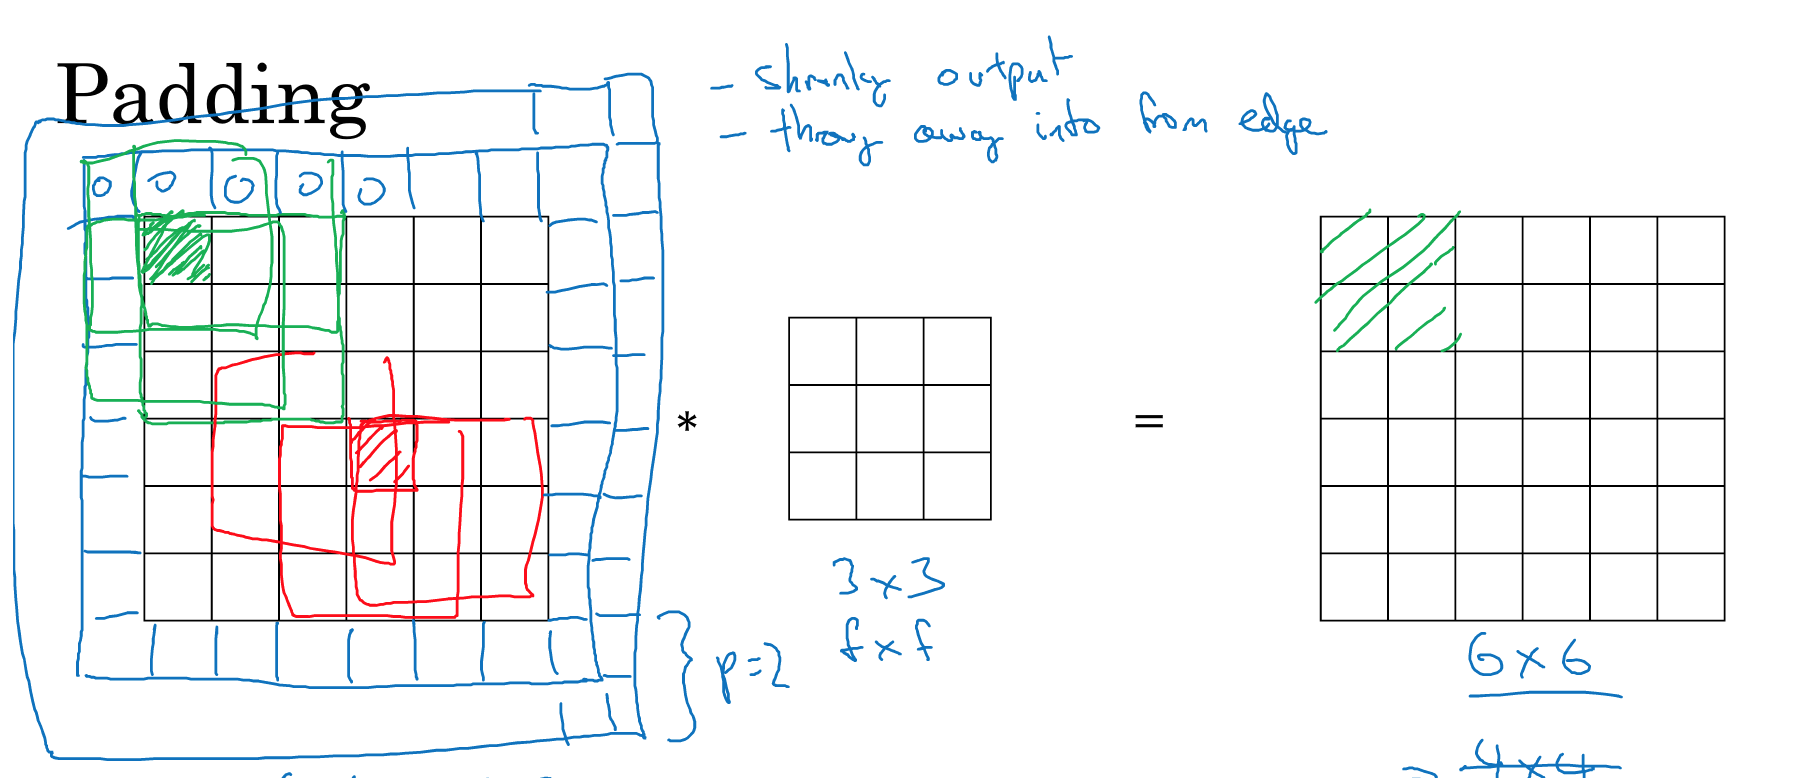 Padding
- shrinky output
- throw away info from edge
0 0 0 0 0
*
=
3 x 3
f x f
p=2
6 x 6
4 x 4